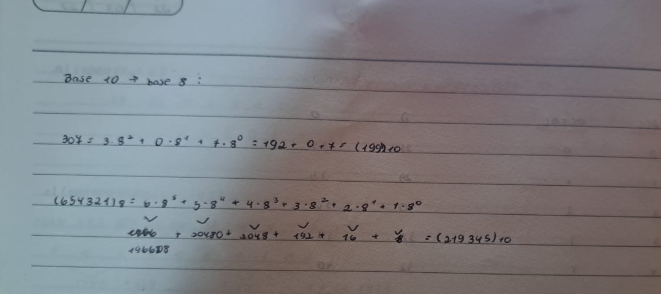 Base 10 → base 8:
307 = 3·8² + 0·8¹ + 7·8⁰ = 192 + 0 + 7 = (199)10
(654321)8 = 6·8⁵ + 5·8⁴ + 4·8³ + 3·8² + 2·8¹ + 1·8⁰
+ 20480 + 2048 + 192 + 16 + = (219345)10
196608